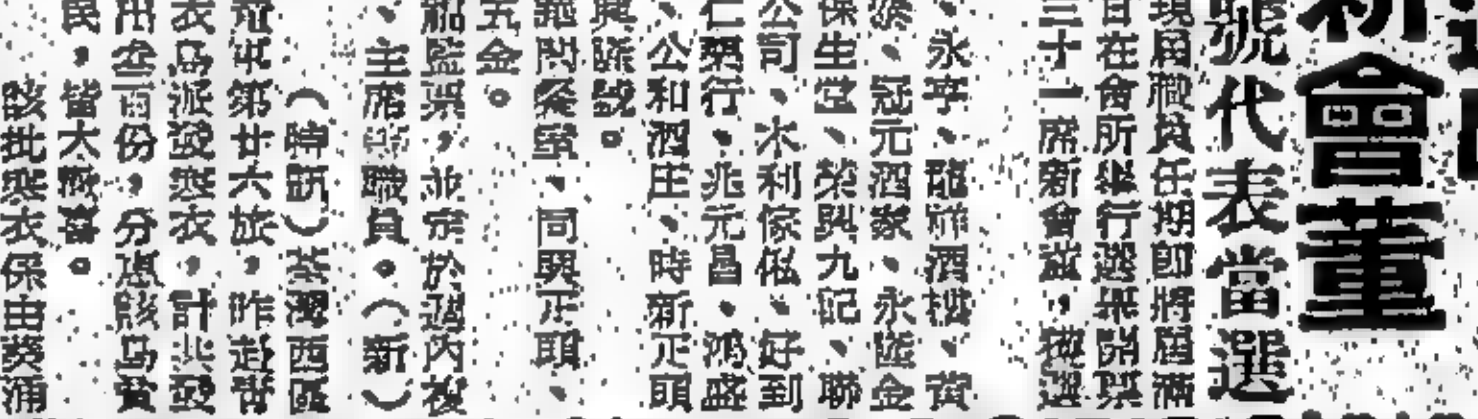 新會董
號代表當選
現屆職員任期即將屆滿
日在會所舉行選舉開票
三十一席新會董，複選
、永亨、龍祥酒樓、黃
、冠元酒家、永隆金
保生堂、榮興九記、聯
公司、水利傢俬、好到
仁榮行、兆元昌、鴻盛
、公和酒庄、時新正頭
興隆號。
、同興正頭、
五金。
船監票，並定於週內複
、主席等職員。（新）
（時訊）荃灣西區
冠軍第廿六旅，昨趁青
衣島派發寒衣，計共發
出叁百份，分派該島貧
民，皆大歡喜。
該批寒衣係由葵涌